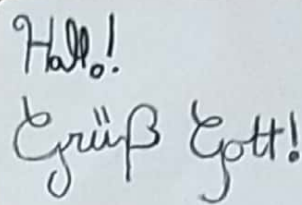 Hallo!
Grüß Gott!